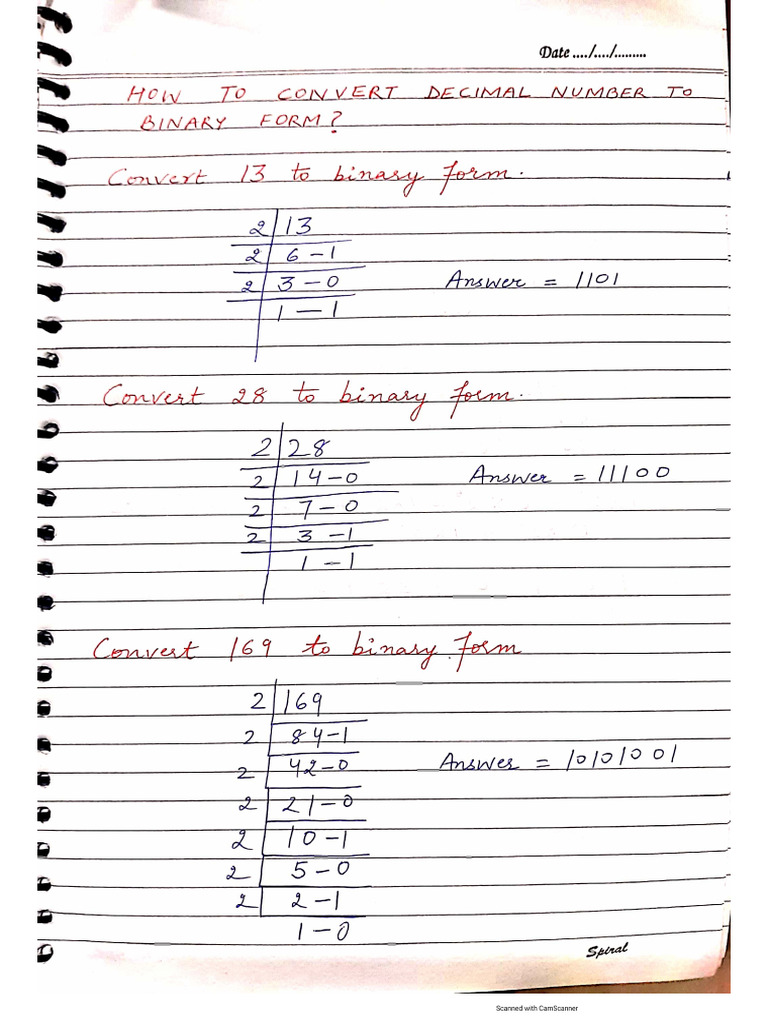 Date ..../..../.........
HOW TO CONVERT DECIMAL NUMBER TO
BINARY FORM?
Convert 13 to binary form.
2 | 13
2 | 6 - 1
2 | 3 - 0
1 - 1
Answer = 1101
Convert 28 to binary form.
2 | 28
2 | 14 - 0
2 | 7 - 0
2 | 3 - 1
1 - 1
Answer = 11100
Convert 169 to binary form
2 | 169
2 | 84 - 1
2 | 42 - 0
2 | 21 - 0
2 | 10 - 1
2 | 5 - 0
2 | 2 - 1
1 - 0
Answer = 10101001
Spiral
Scanned with CamScanner